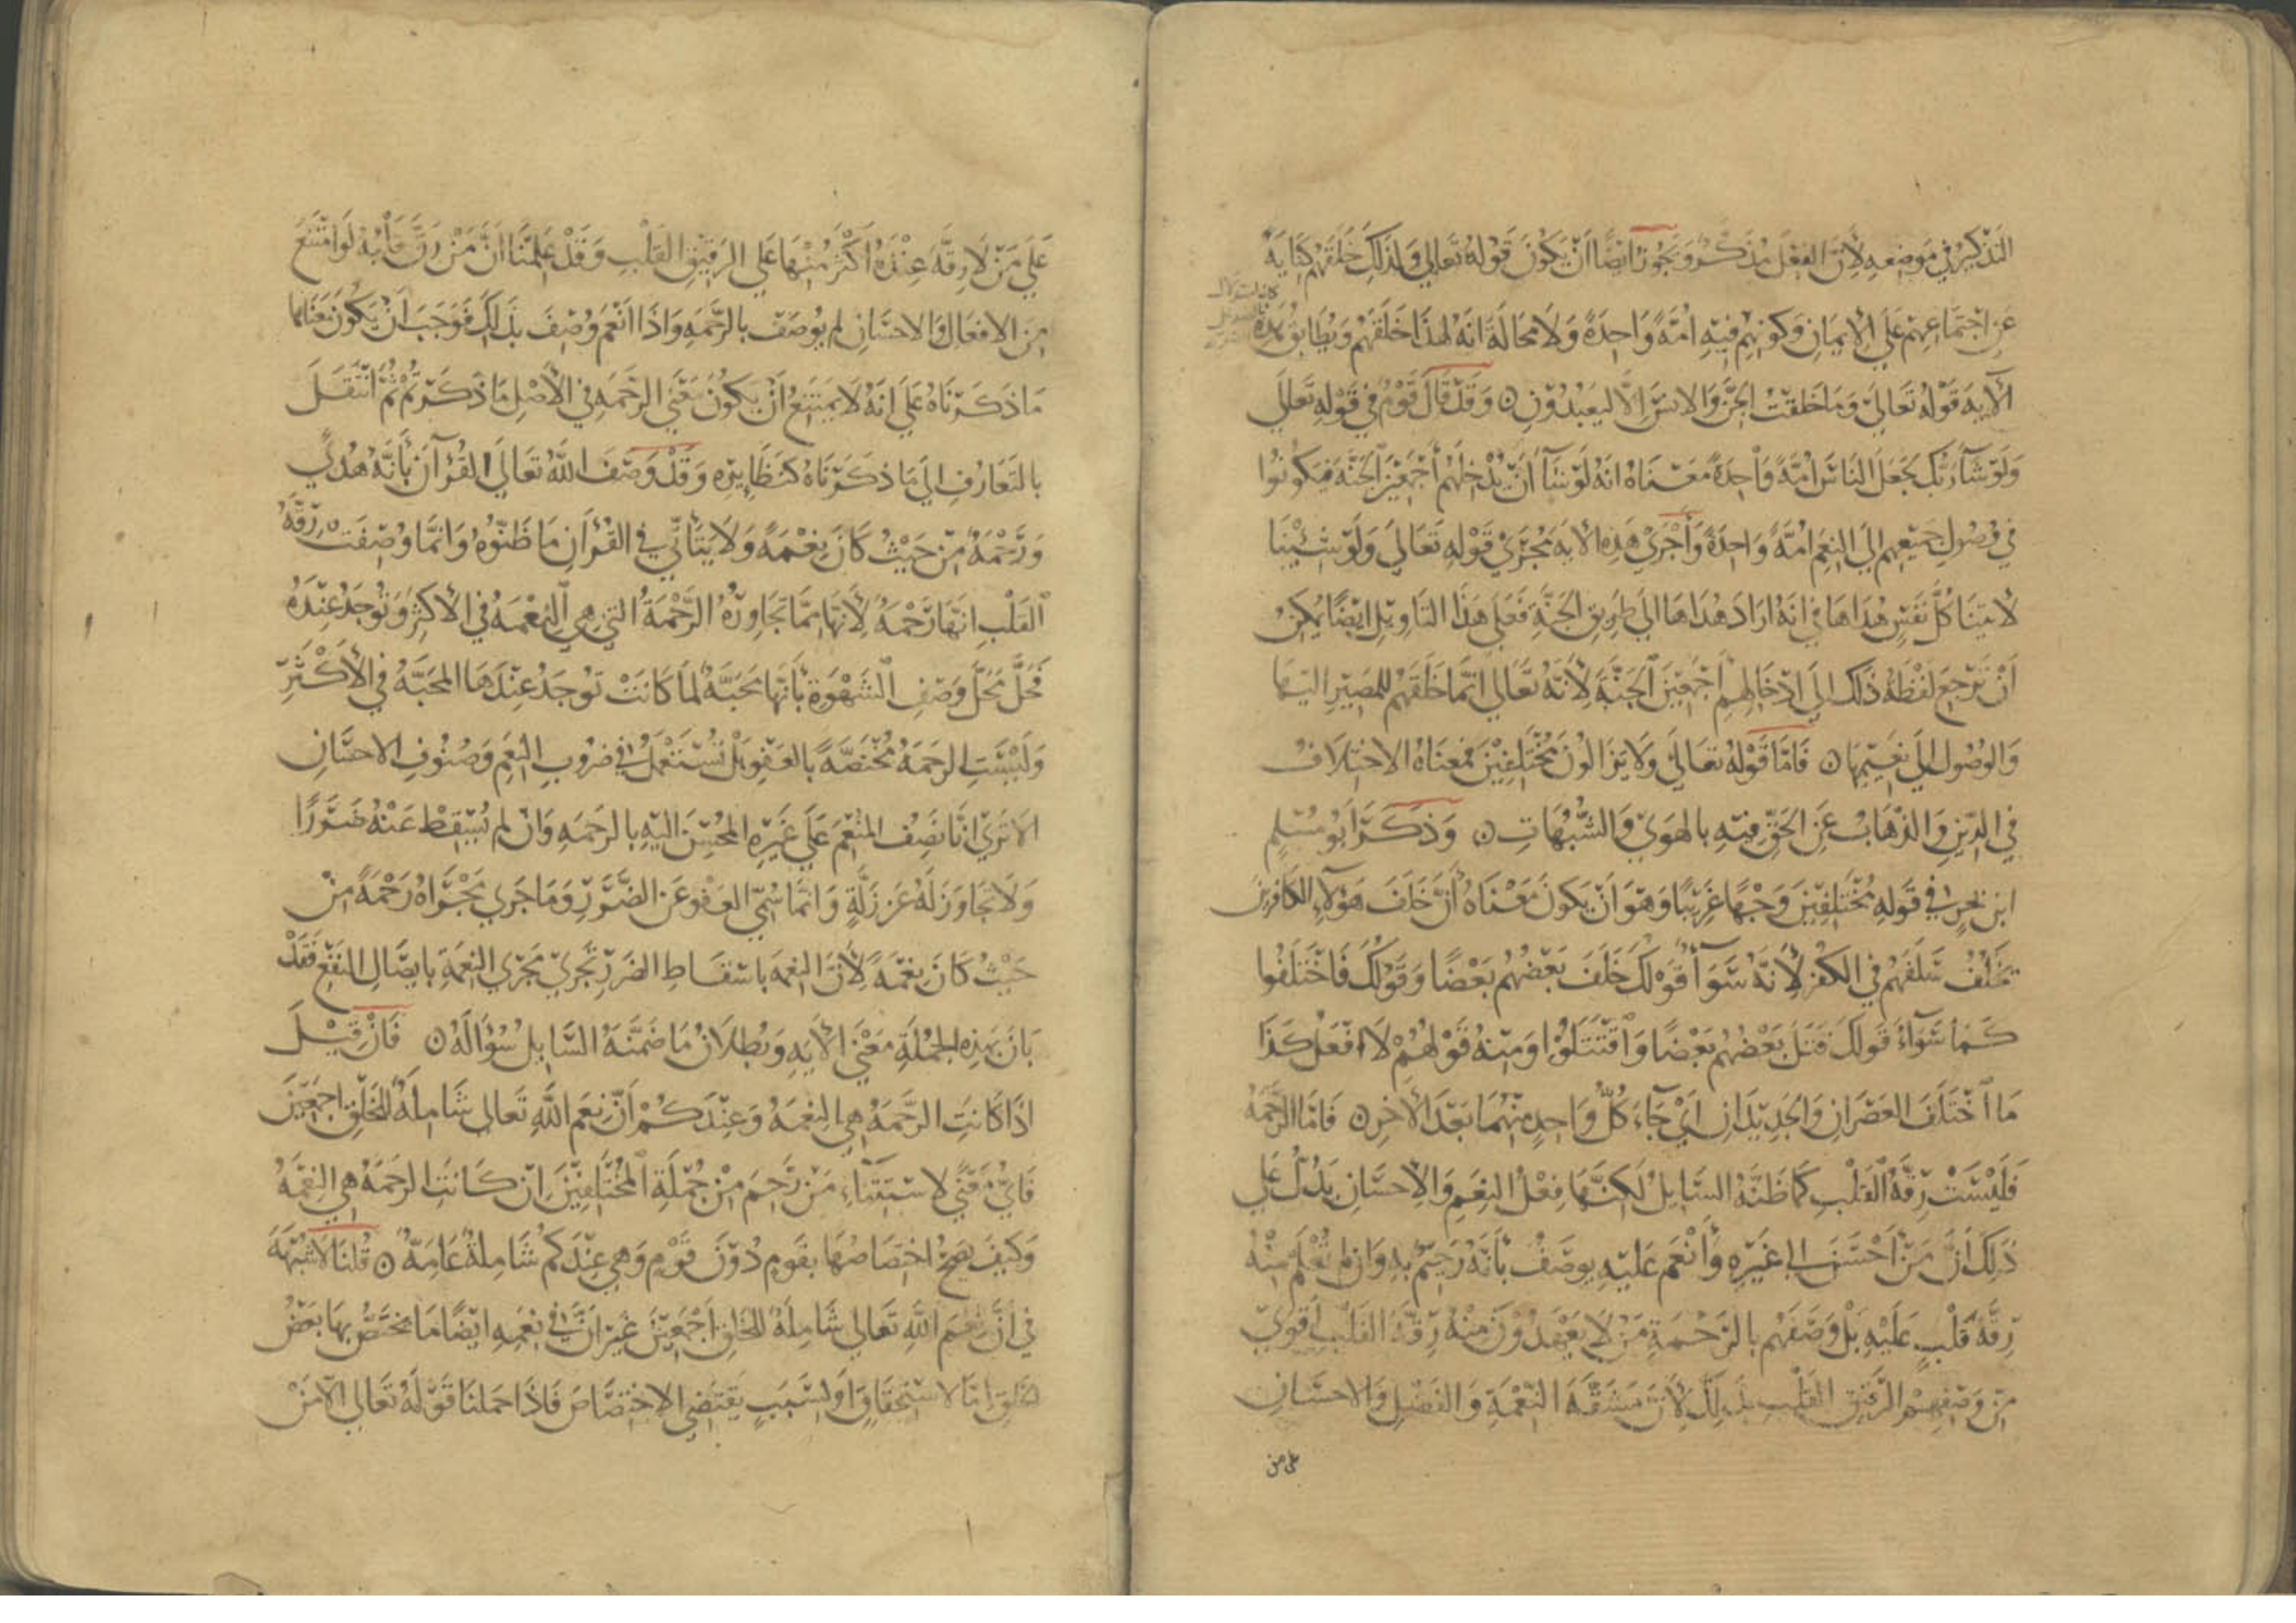 التذكير في موضعه لأن الفعل مذكر ويجوز أيضا أن يكون قوله تعالي ولذلك خلقهم كناية
عن اجتماعهم علي الايمان وكونهم فيه امة واحدة ولا محالة انه لهذا خلقهم ويطابق هذه
الآية قوله تعالي وما خلقت الجن والانس الا ليعبدون ۝ وقد قال قوم في قوله تعالي
ولو شآء ربك لجعل الناس امة واحدة معناه انه لو شآ أن يدخلهم أجمعين الجنة فيكونوا
في وصول جميعهم الي النعم امة واحدة وأجري هذه الآية مجري قوله تعالي ولو شئنا
لآتينا كل نفس هداها في انه اراد هداها الي طريق الجنة فعلي هذا التاويل ايضا يمكن
أن ترجع لفظة ذلك الي ادخالهم أجمعين الجنة لأنه تعالي انما خلقهم للمصير اليها
والوصول الي نعيمها ۝ فاما قوله تعالي ولا يزالون مختلفين فمعناه الاختلاف
في الدين والذهاب عن الحق فيه بالهوي والشبهات ۝ وذكر أبو مسلم
ابن بحر في قوله مختلفين وجها غريبا وهو ان يكون معناه أن خلف هؤلآء الكافرين
يخلف سلفهم في الكفر لأنه سوآ قولك خلف بعضهم بعضا وقولك فاختلفوا
كما سوآء قولك قتل بعضهم بعضا واقتتلوا ومنه قولهم لا افعل كذا
ما اختلف العصران والجديدان اي جآء كل واحد منهما بعد الآخر ۝ فاما الرحمة
فليست رقة القلب كما ظنه السايل لكنها فعل النعم والاحسان يدل علي
ذلك أن من أحسن الي غيره وأنعم عليه يوصف بأنه رحيم به وان لم تعلم منه
رقة قلب عليه بل وصفهم بالرحمة من لا يعهدون منه رقة القلب أقوي
من وصفهم الرقيق القلب بذلك لأن مشقة النعمة والفضل والاحسان
علي من
علي من لا رقة عنده أكثر منها علي الرقيق القلب وقد علمنا ان من رق قلبه لو امتنع
من الافعال والاحسان لم يوصف بالرحمة واذا انعم وصف بذلك فوجب ان يكون معناها
ما ذكرناه علي انه لا يمتنع أن يكون معني الرحمة في الأصل ما ذكرتم ثم انتقل
بالتعارف الي ما ذكرناه كنظايره وقد وصف الله تعالي القرآن بأنه هدي
ورحمة من حيث كان نعمة ولا يتأتي في القرآن ما ظنوه وانما وصفت رقة
القلب انها رحمة لأنها مما تجاوره الرحمة التي هي النعمة في الأكثر وتوجد عنده
فحل محل وصف الشهوة بأنها محبة لما كانت توجد عندها المحبة في الأكثر
وليست الرحمة مختصة بالعفو بل تستعمل في ضروب النعم وصنوف الاحسان
الا تري انا نصف المنعم علي غيره المحسن اليه بالرحمة وان لم يسقط عنه ضررا
ولا تجاوز له عن زلة وانما سمي العفو عن الضرر وما جري مجراه رحمة من
حيث كان نعمة لأن النعمة باسقاط الضرر تجري مجري النعمة بايصال النفع فقد
بان بهذه الجملة معني الآية وبطلان ما ضمنه السايل سؤاله ۝ فان قيل
اذا كانت الرحمة هي النعمة وعندكم أن نعم الله تعالي شاملة للخلق اجمعين
فاي معني لاستثناء من رحم من جملة المختلفين ان كانت الرحمة هي النعمة
وكيف يصح اختصاصها بقوم دون قوم وهي عندكم شاملة عامة ۝ قلنا لا شبهة
في ان نعم الله تعالي شاملة للخلق أجمعين غير ان في نعمه ايضا ما يختص بها بعض
الخلق اما لاستحقاق او لسبب يقتضي الاختصاص فاذا حملنا قوله تعالي الا من